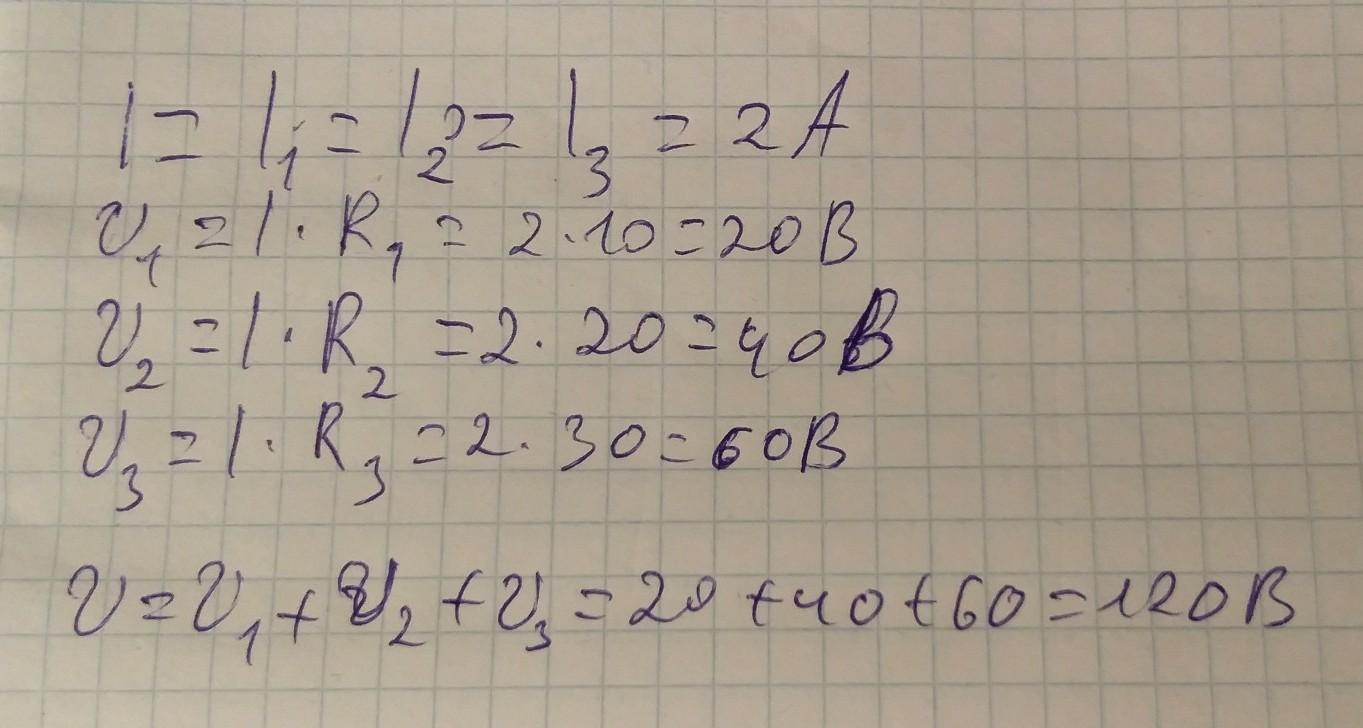 I = I₁ = I₂ = I₃ = 2А
U₁ = I · R₁ = 2 · 10 = 20В
U₂ = I · R₂ = 2 · 20 = 40В
U₃ = I · R₃ = 2 · 30 = 60В
U = U₁ + U₂ + U₃ = 20 + 40 + 60 = 120В